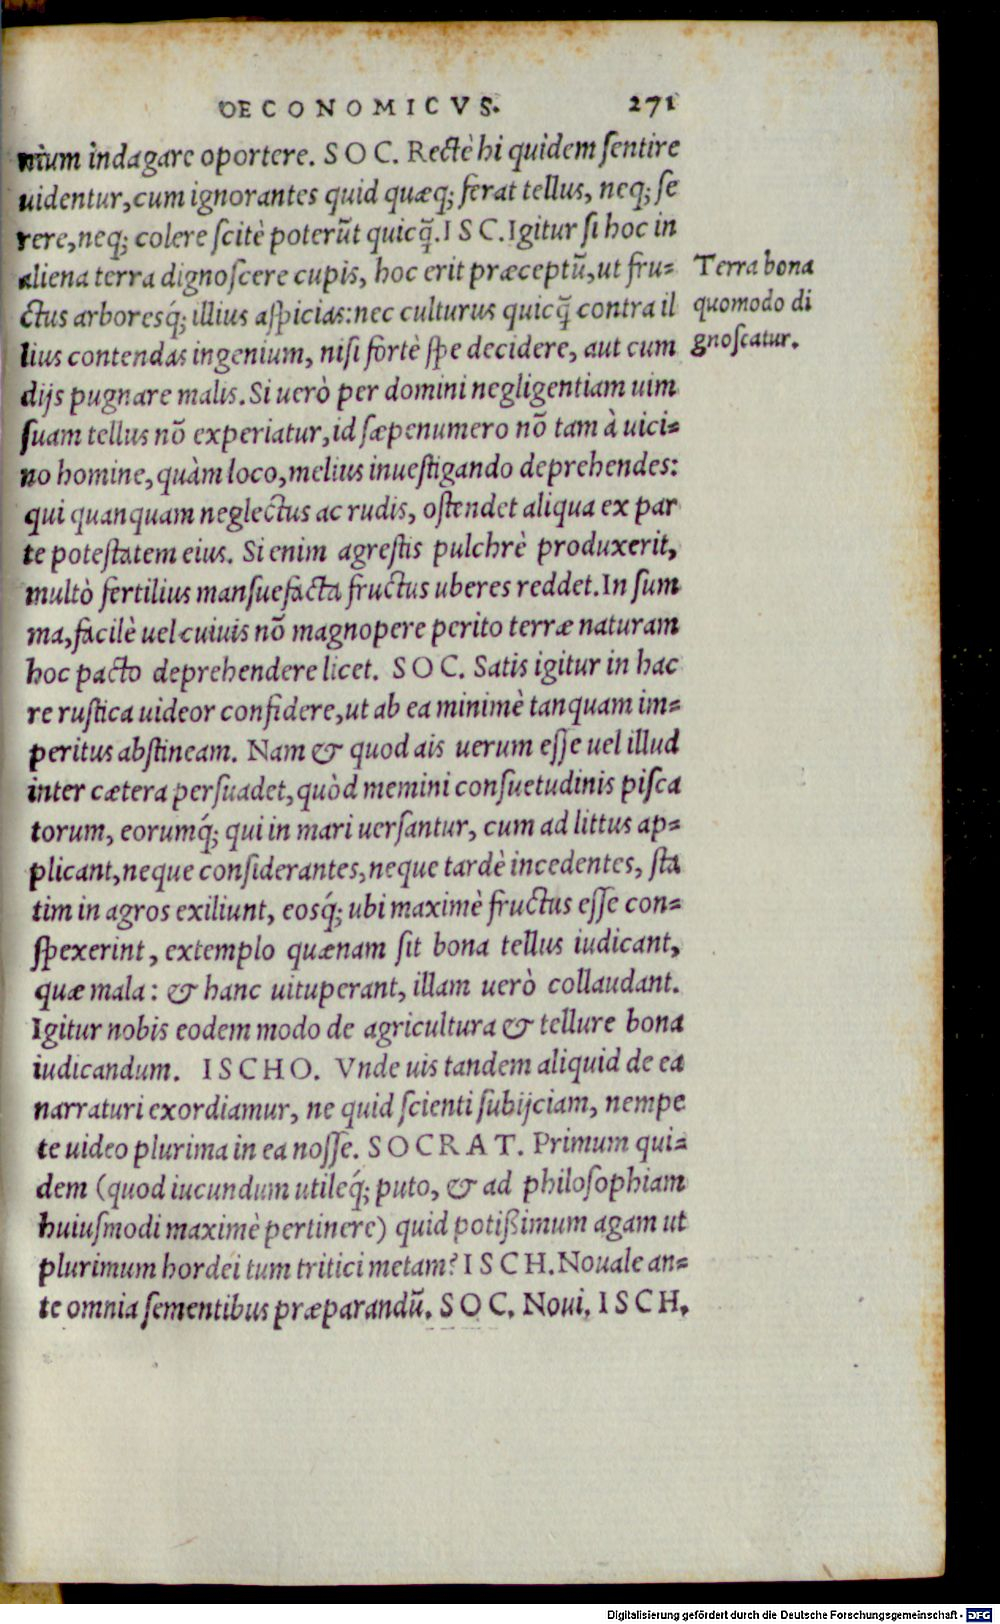 OECONOMICVS. 271
nium indagare oportere. SOC. Rectè hi quidem ſentire
uidentur, cum ignorantes quid quæq; ferat tellus, neq; ſe
rere, neq; colere ſcitè poterũt quicq̃. ISC. Igitur ſi hoc in
aliena terra dignoſcere cupis, hoc erit præceptũ, ut fru-
ctus arboresq́; illius aſpicias: nec culturus quicq̃ contra il
lius contendas ingenium, niſi fortè ſpe decidere, aut cum
dijs pugnare malis. Si uerò per domini negligentiam uim
ſuam tellus nõ experiatur, id ſæpenumero nõ tam à uici-
no homine, quàm loco, melius inueſtigando deprehendes:
qui quanquam neglectus ac rudis, oſtendet aliqua ex par
te poteſtatem eius. Si enim agreſtis pulchrè produxerit,
multò fertilius manſuefacta fructus uberes reddet. In ſum
ma, facilè uel cuiuis nõ magnopere perito terræ naturam
hoc pacto deprehendere licet. SOC. Satis igitur in hac
re ruſtica uideor confidere, ut ab ea minimè tanquam im-
peritus abſtineam. Nam & quod ais uerum eſſe uel illud
inter cætera perſuadet, quòd memini conſuetudinis piſca
torum, eorumq́; qui in mari uerſantur, cum ad littus ap-
plicant, neque conſiderantes, neque tardè incedentes, ſta
tim in agros exiliunt, eosq́; ubi maximè fructus eſſe con-
ſpexerint, extemplo quænam ſit bona tellus iudicant,
quæ mala: & hanc uituperant, illam uerò collaudant.
Igitur nobis eodem modo de agricultura & tellure bona
iudicandum. ISCHO. Vnde uis tandem aliquid de ea
narraturi exordiamur, ne quid ſcienti ſubijciam, nempe
te uideo plurima in ea noſſe. SOCRAT. Primum qui-
dem (quod iucundum utileq́; puto, & ad philoſophiam
huiuſmodi maximè pertinere) quid potißimum agam ut
plurimum hordei tum tritici metam? ISCH. Nouale an-
te omnia ſementibus præparandũ. SOC. Noui. ISCH.
Terra bona
quomodo di
gnoſcatur.
Digitalisierung gefördert durch die Deutsche Forschungsgemeinschaft - DFG